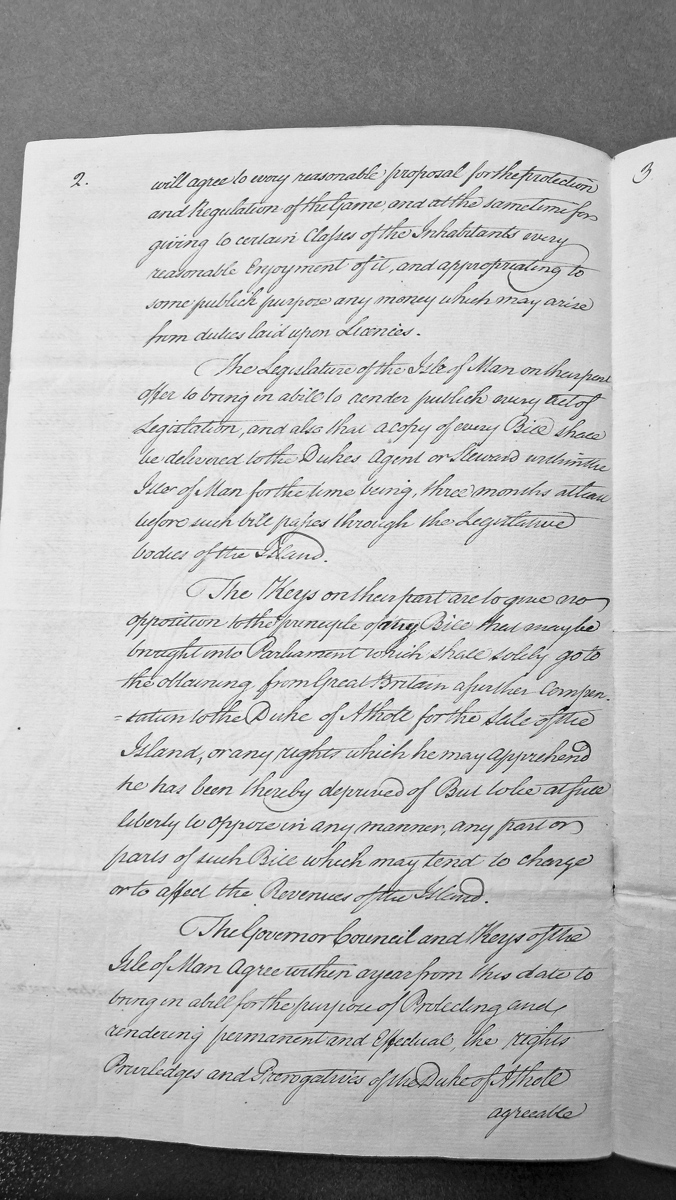 2.
will agree to every reasonable proposal for the protection
and Regulation of the Game, and at the same time for
giving to certain Classes of the Inhabitants every
reasonable Enjoyment of it, and appropriating to
some publick purpose any money which may arise
from duties laid upon Licences.
The Legislature of the Isle of Man on their part
offer to bring in a bill to render publick every Act of
Legislation, and also that a copy of every Bill shall
be delivered to the Dukes Agent or Steward within the
Isle of Man for the time being, three months at least
before such bill passes through the Legislative
bodies of the Island.
The Keys on their part are to give no
opposition to the principle of any Bill that may be
brought into Parliament which shall solely go to
the obtaining from Great Britain a further Compen-
=sation to the Duke of Atholl for the Sale of the
Island, or any rights which he may apprehend
he has been thereby deprived of But to be at full
liberty to oppose in any manner, any part or
parts of such Bill which may tend to charge
or to affect the Revenues of the Island.
The Governor Council and Keys of the
Isle of Man Agree within a year from this date to
bring in a bill for the purpose of Protecting and
rendering permanent and Effectual, the rights
Priviledges and Prerogatives of the Duke of Atholl
agreeable
3